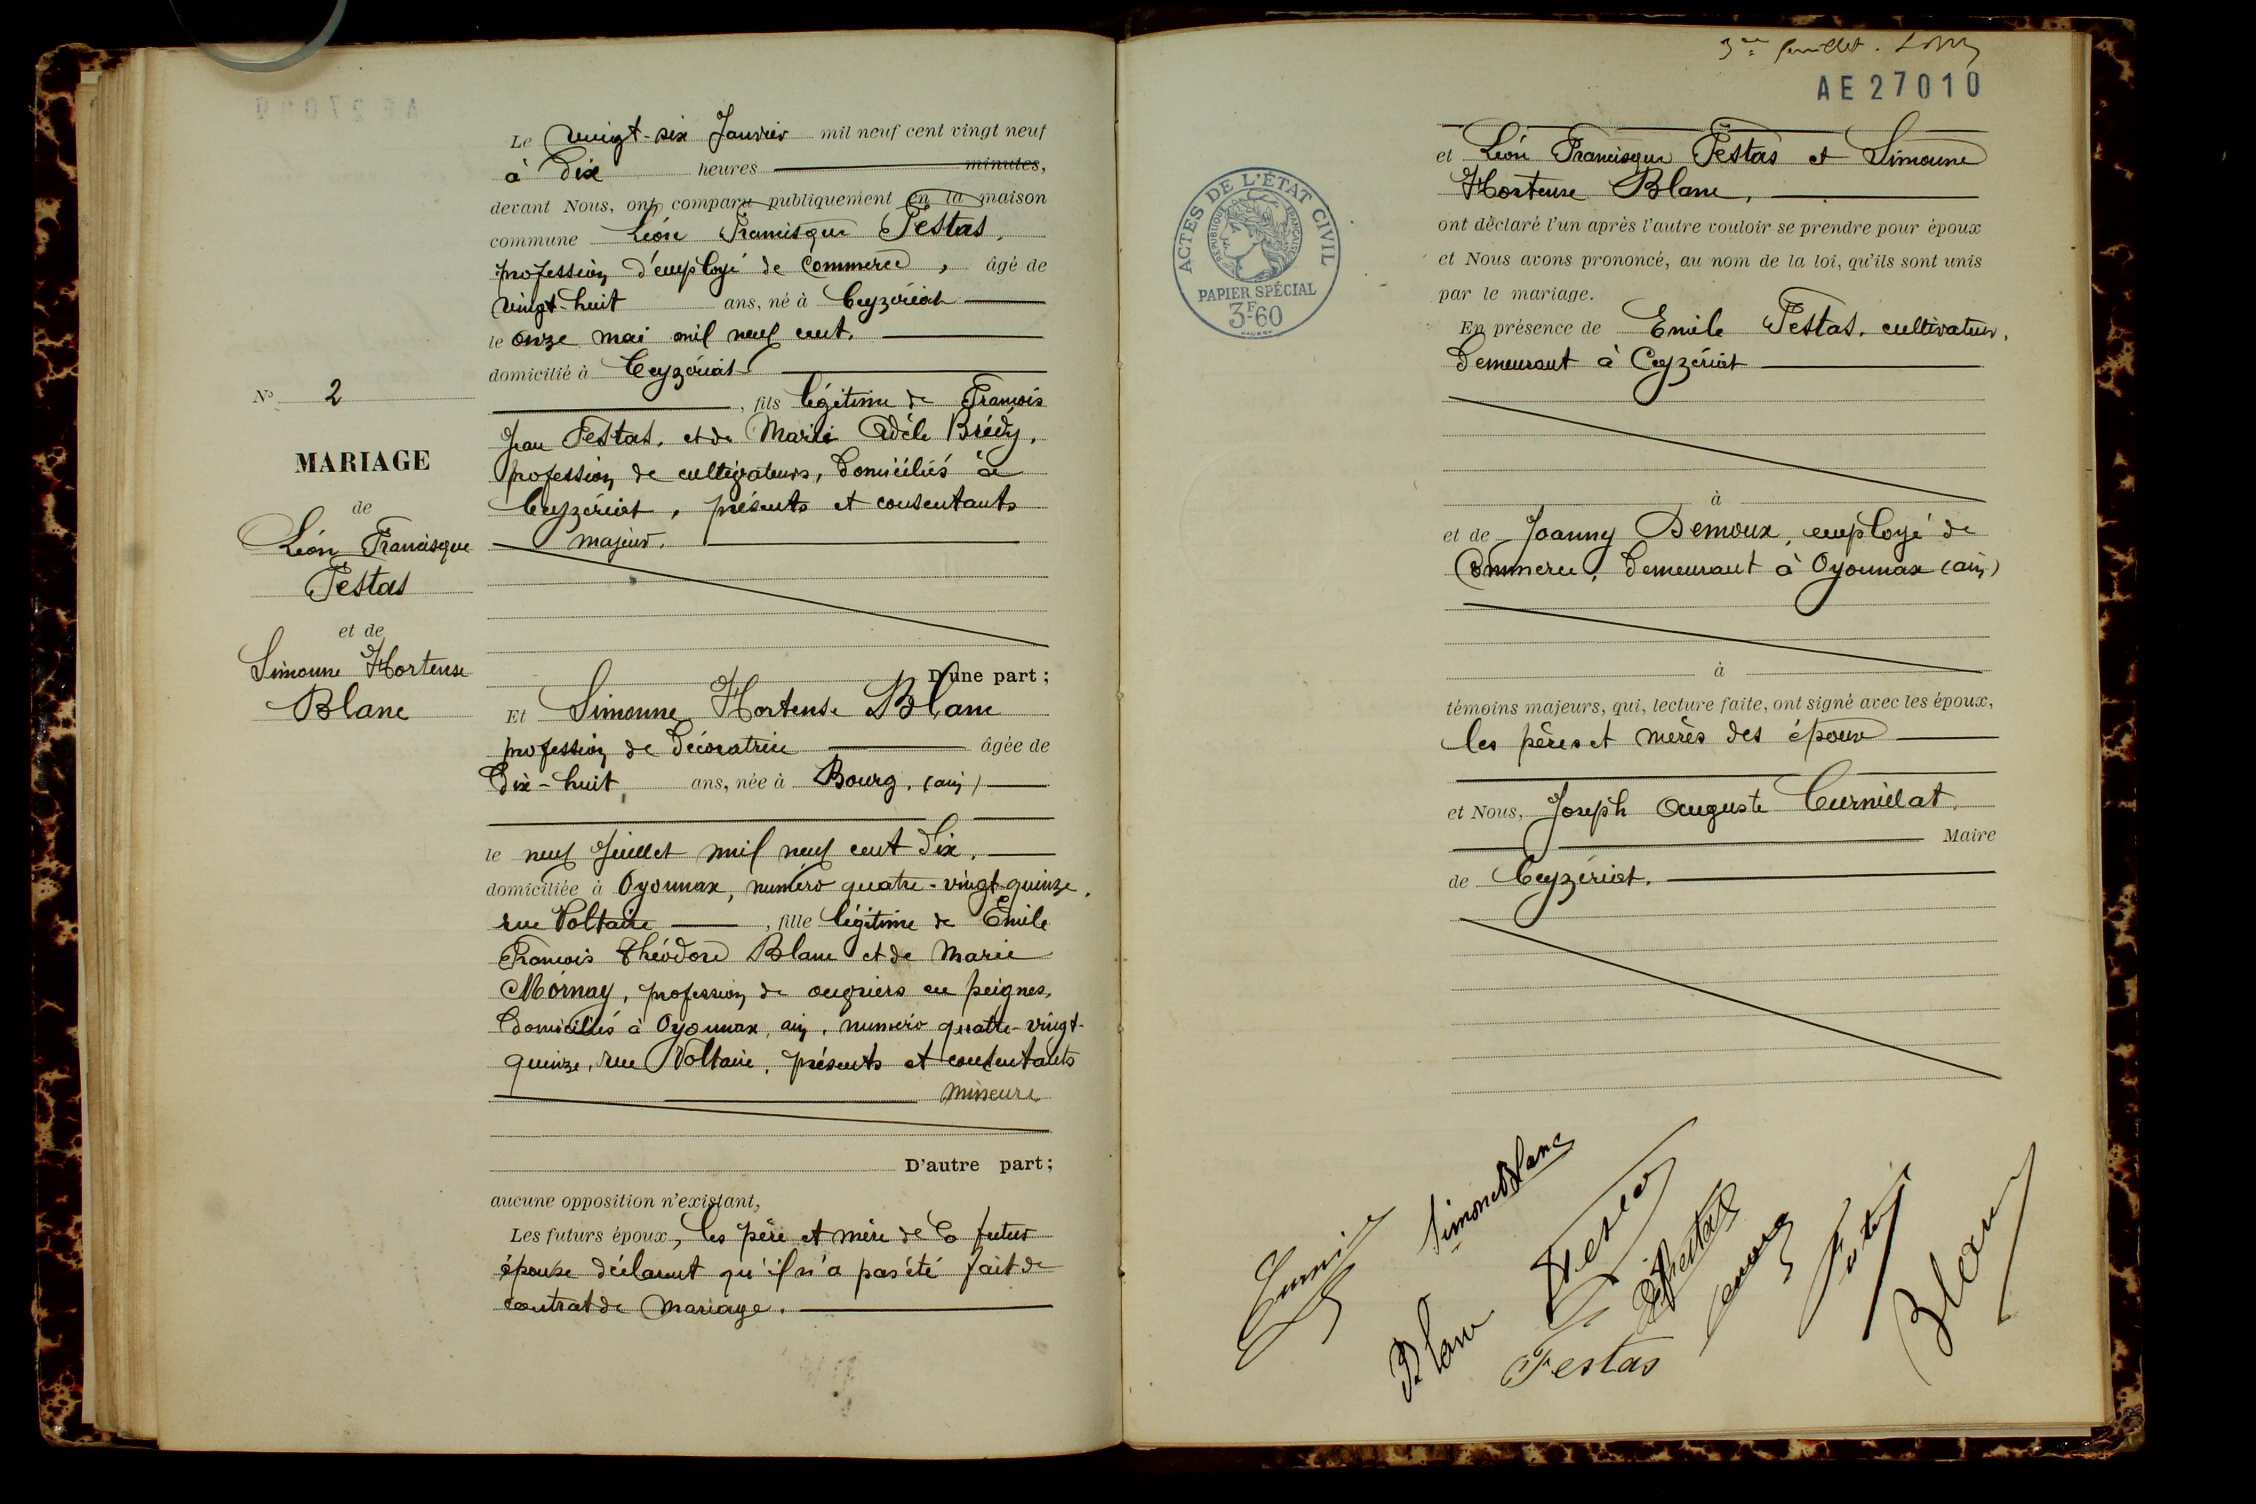 Le vingt-six Janvier mil neuf cent vingt neuf
à Dix heures minutes,
devant Nous, ont comparu publiquement en la maison
commune Léon Francisque Festas,
profession d'employé de commerce, âgé de
vingt-huit ans, né à Ceyzériat
le onze mai mil neuf cent.
domicilié à Ceyzériat
, fils légitime de François
Jean Festas, et de Marie Adèle Brédy,
profession de cultivateurs, domiciliés à
Ceyzériat, présents et consentants
majeur.
N° 2
MARIAGE
de
Léon Francisque
Festas
et de
Simonne Hortense
Blanc
D'une part;
Et Simonne Hortense Blanc
profession de Décoratrice âgée de
Dix-huit ans, née à Bourg, (ain)
le neuf Juillet mil neuf cent dix,
domiciliée à Oyonnax, numéro quatre-vingt-quinze,
rue Voltaire, fille légitime de Emile
François Théodore Blanc et de Marie
Mornay, profession de ouvriers en peignes,
domiciliés à Oyonnax, ain, numéro quatre-vingt-
quinze, rue Voltaire, présents et consentants
mineure
D'autre part;
aucune opposition n'existant,
Les futurs époux, les père et mère de la future
épouse déclarent qu'il n'a pas été fait de
contrat de mariage.
3me feuillet.
AE27010
et Léon Francisque Festas et Simonne
Hortense Blanc,
ont déclaré l'un après l'autre vouloir se prendre pour époux
et Nous avons prononcé, au nom de la loi, qu'ils sont unis
par le mariage.
En présence de Emile Festas, cultivateur,
demeurant à Ceyzériat
à
et de Joanny Demoux, employé de
Commerce, demeurant à Oyonnax (ain)
à
témoins majeurs, qui, lecture faite, ont signé avec les époux,
les pères et mères des époux
et Nous, Joseph Auguste Curnillat,
Maire
de Ceyzériat.
ACTES DE L'ÉTAT CIVIL
RÉPUBLIQUE FRANÇAISE
PAPIER SPÉCIAL
3F60
Simone Blanc
Blanc
Festas
Blanc